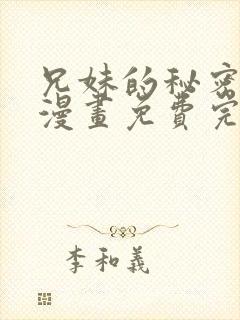 兄妹的秘密
漫畫免費完
李和義